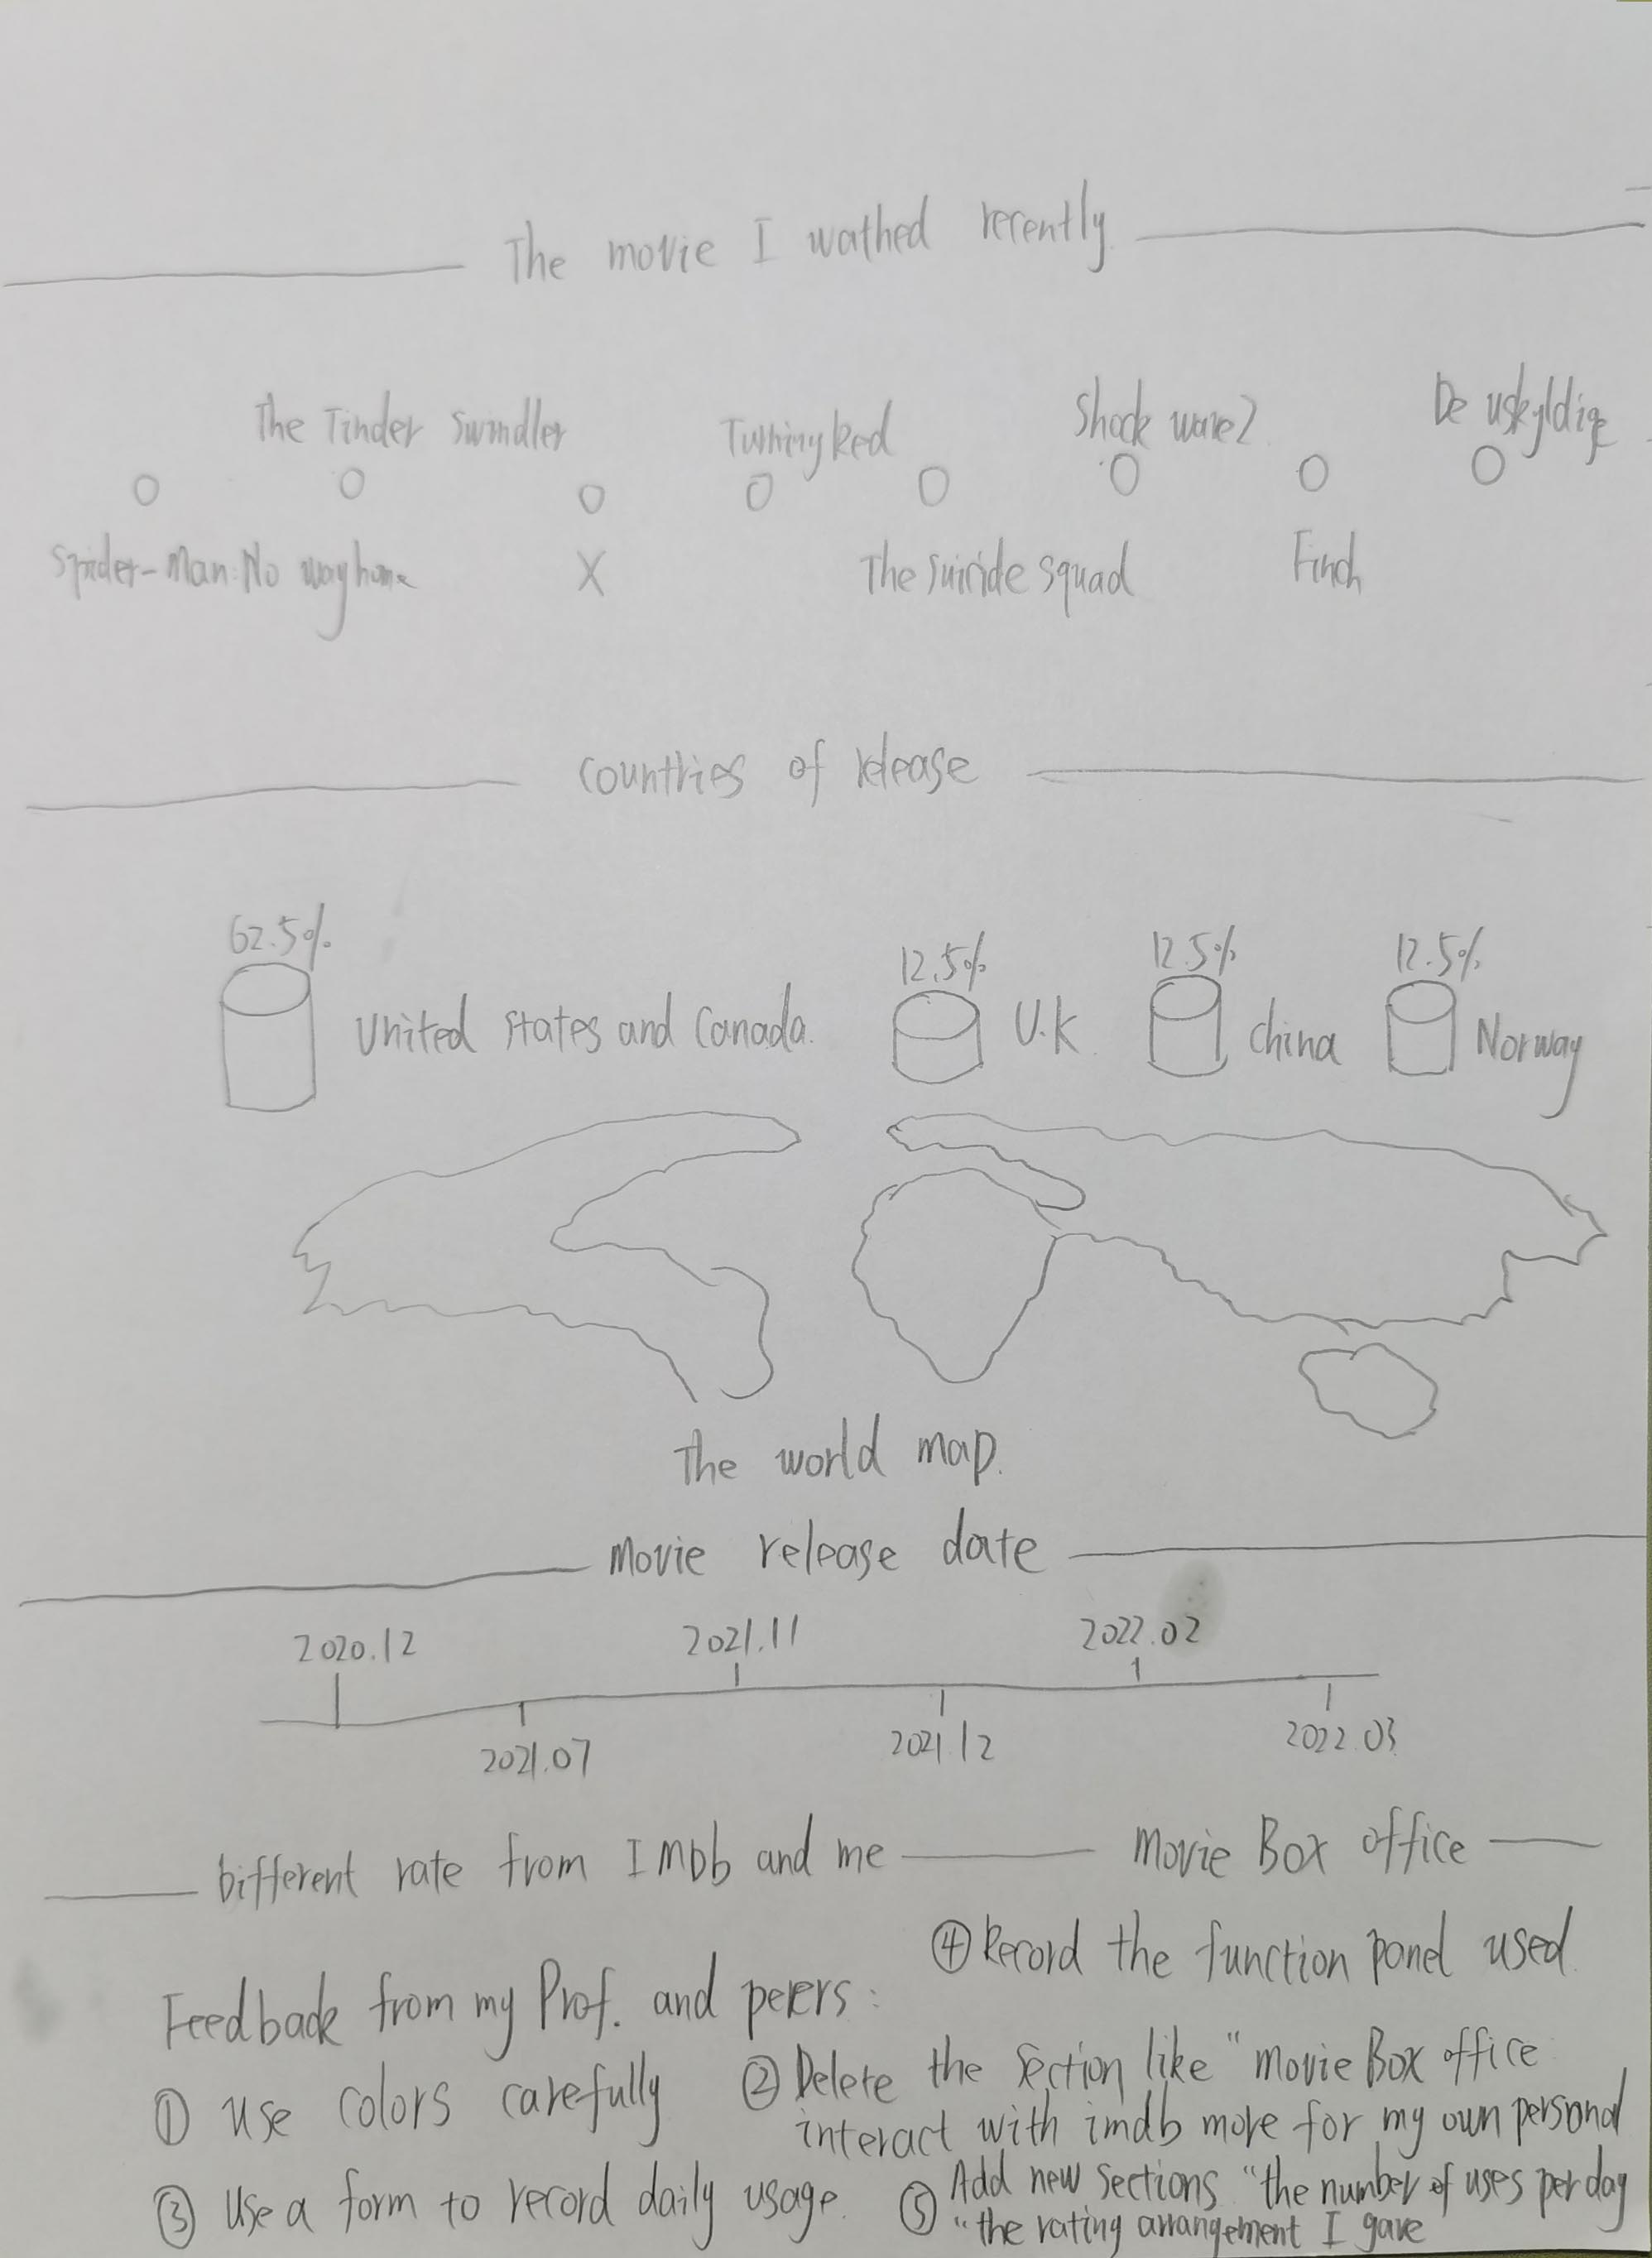 The movie I wathed recently.
The Tinder Swindler
Turning Red
Shock wave 2.
De uskyldige
Spider-Man: No way home
X
The Suicide Squad
Finch
countries of release
62.5%
12.5%
12.5%
12.5%
United States and Canada.
U.K.
China
Norway
The world map.
Movie release date
2020.12
2021.11
2022.02
2021.07
2021.12
2022.03
Different rate from IMDb and me
Movie Box office
④ Record the function panel used.
Feedback from my Prof. and peers:
① Use colors carefully
② Delete the section like "movie Box office
interact with imdb more for my own personal
③ Use a form to record daily usage.
⑤ Add new sections "the number of uses per day
"the rating arrangement I gave